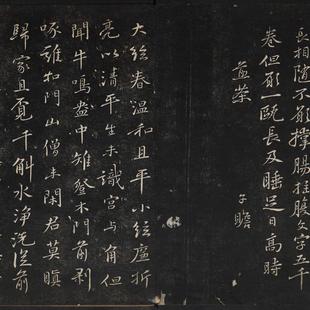 長相隨不願撐腸拄腹文字五千
卷但願一甌長及睡足日高時
子瞻
大絃春溫和且平小絃廉折
亮以清平生未識宮與角但
聞牛鳴盎中雉登木門前剝
啄誰扣門山僧未閑君莫瞋
歸家且覓千斛水淨洗從前